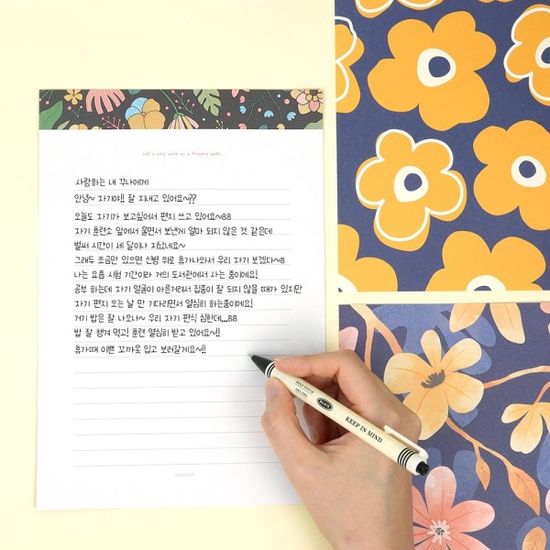 Let's only walk on a flowery path.
사랑하는 내 꾸나에게
안녕~ 자기야!! 잘 지내고 있어요~??
오늘도 자기가 보고싶어서 편지 쓰고 있어요~88
자기 훈련소 앞에서 울면서 보낸게 얼마 되지 않은 것 같은데
벌써 시간이 세 달이나 지났네요~
그래두 조금만 있으면 신병 위로 휴가나와서 우리 자기 보겠다~8
나는 요즘 시험 기간이라 거의 도서관에서 사는 중이에요!
공부 하는데 자기 얼굴이 아른거려서 집중이 잘 되지 않을 때가 있지만
자기 편지 오는 날 만 기다리면서 열심히 하는중이에요!
거기 밥은 잘 나오나~ 우리 자기 편식 심한데...88
밥 잘 챙겨 먹고! 훈련 열심히 받고 있어요~!!
휴가때 이쁜 꼬까옷 입고 보러갈게요~!!
KEEP IN MIND